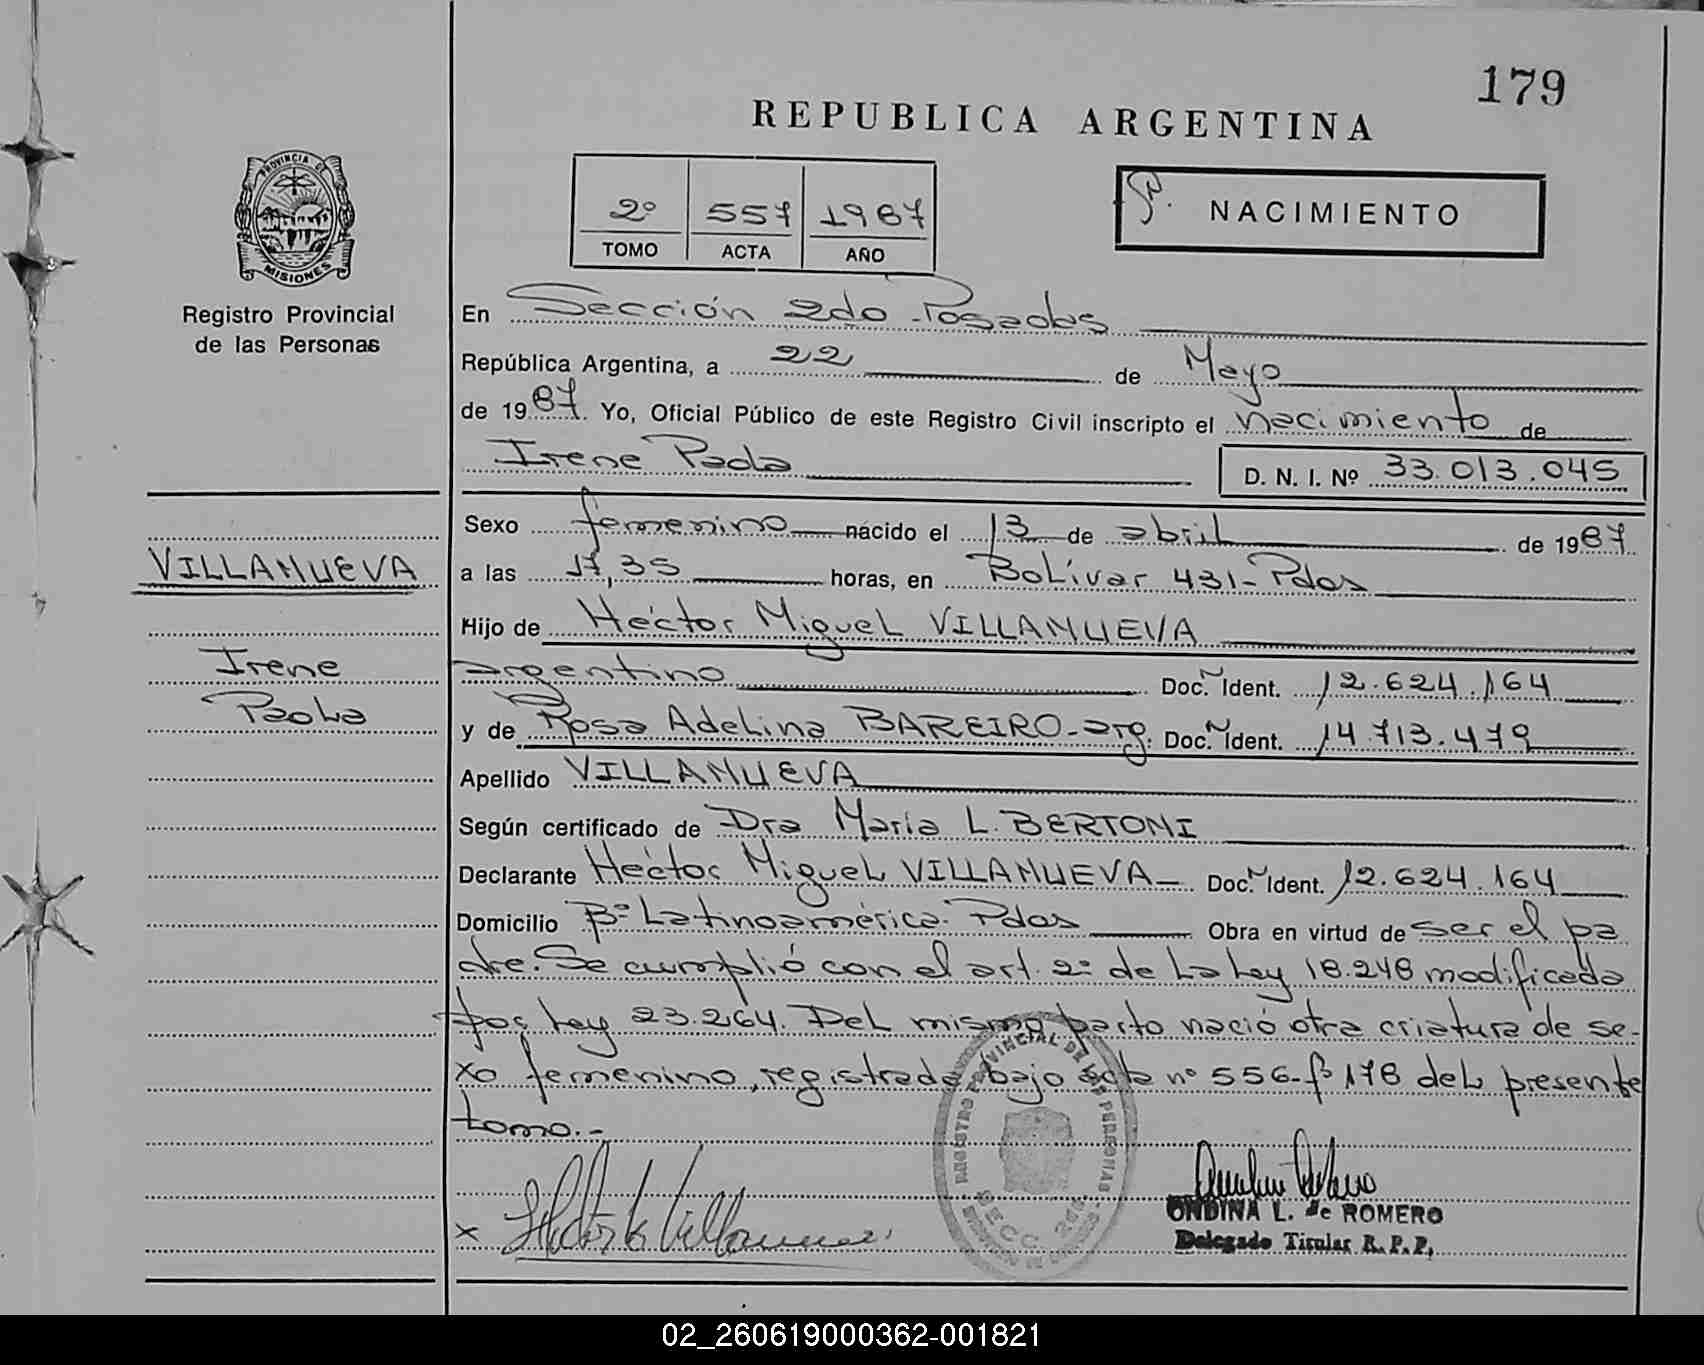 179
REPUBLICA ARGENTINA
PROVINCIA DE
MISIONES
Registro Provincial
de las Personas
2º 557 1987
TOMO ACTA AÑO
NACIMIENTO
En Sección 2do Posadas
República Argentina, a 22 de Mayo
de 1987. Yo, Oficial Público de este Registro Civil inscripto el nacimiento de
Irene Paola
D. N. I. Nº 33.013.045
Sexo femenino nacido el 13 de abril de 1987
VILLANUEVA
a las 17,35 horas, en Bolívar 431-Pdas
Hijo de Héctor Miguel VILLANUEVA
Irene
argentino Doc. N Ident. 12.624.164
Paola
y de Rosa Adelina BAREIRO-arg. Doc. N Ident. 14.713.479
Apellido VILLANUEVA
Según certificado de Dra María L. BERTONI
Declarante Héctor Miguel VILLANUEVA- Doc. N Ident. 12.624.164
Domicilio Bº Latinoamérica-Pdas Obra en virtud de ser el pa
dre. Se cumplió con el art. 2º de la Ley 18.248 modificada
por Ley 23.264. Del mismo parto nació otra criatura de se-
xo femenino, registrada bajo acta nº 556-fº 178 del presente
tomo.-
REGISTRO PROVINCIAL DE LAS PERSONAS
SECC. 2da
x
ONDINA L. de ROMERO
Delegado Titular R.P.P.
02_260619000362-001821